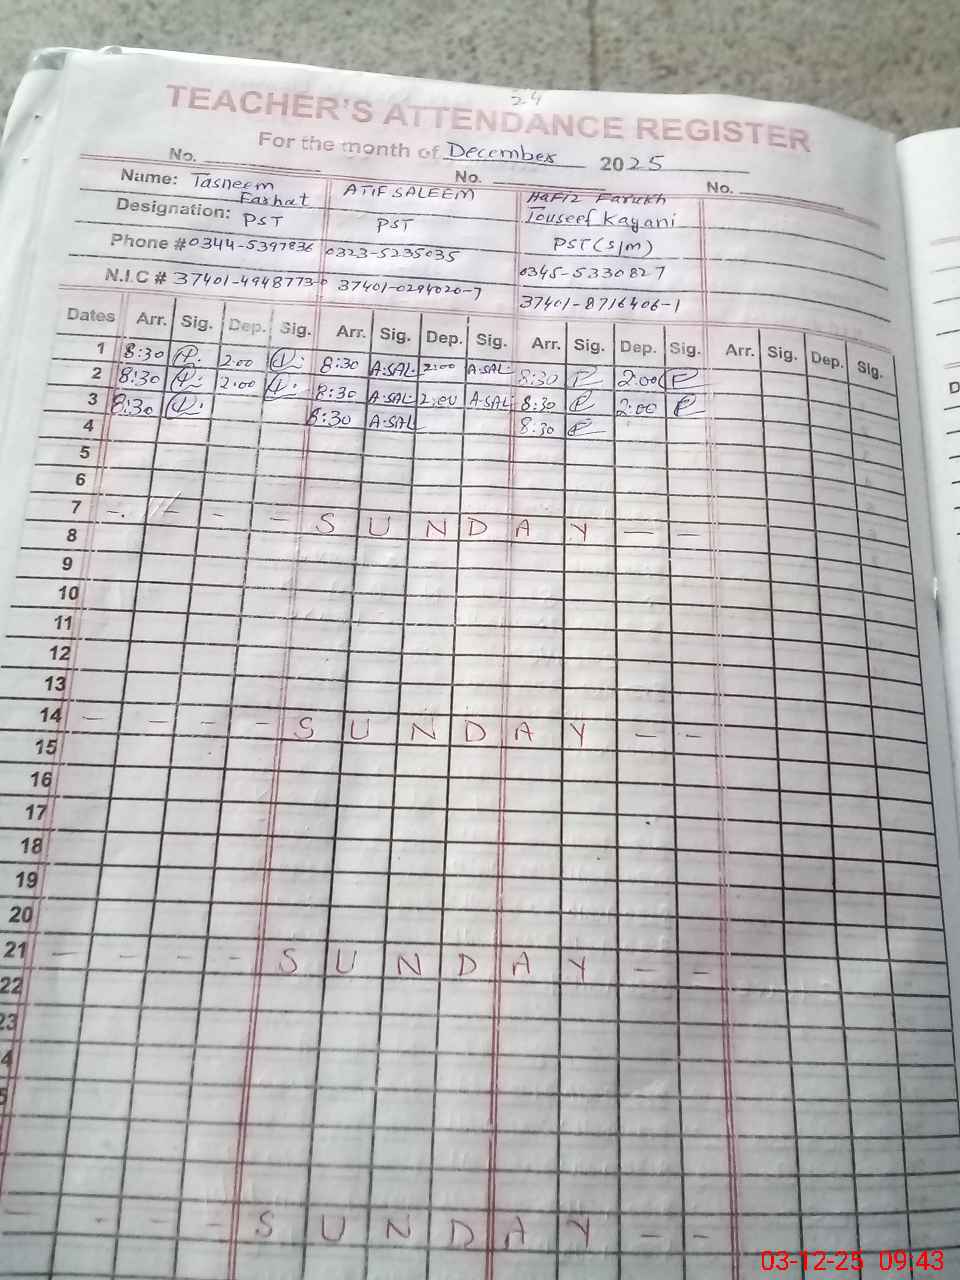 24
TEACHER'S ATTENDANCE REGISTER
For the month of December 2025
No. No. No.
Name: Tasneem Farhat ATIF SALEEM Hafiz Farukh Touseef Kayani
Designation: PST PST PST (S/M)
Phone # 0344-5397836 0323-5235035 0345-5330827
N.I.C # 37401-4948773-0 37401-0294020-7 37401-8716406-1
Dates Arr. Sig. Dep. Sig. Arr. Sig. Dep. Sig. Arr. Sig. Dep. Sig. Arr. Sig. Dep. Sig.
1 8:30 2:00 8:30 A.SAL 2:00 A.SAL 8:30 2:00
2 8:30 2:00 8:30 A.SAL 2:00 A.SAL 8:30 2:00
3 8:30 8:30 A.SAL 8:30
4
5
6
7 - - - - S U N D A Y - -
8
9
10
11
12
13
14 - - - - S U N D A Y - -
15
16
17
18
19
20
21 - - - - S U N D A Y - -
22
23
4
5
- - - - S U N D A Y - -
03-12-25 09:43